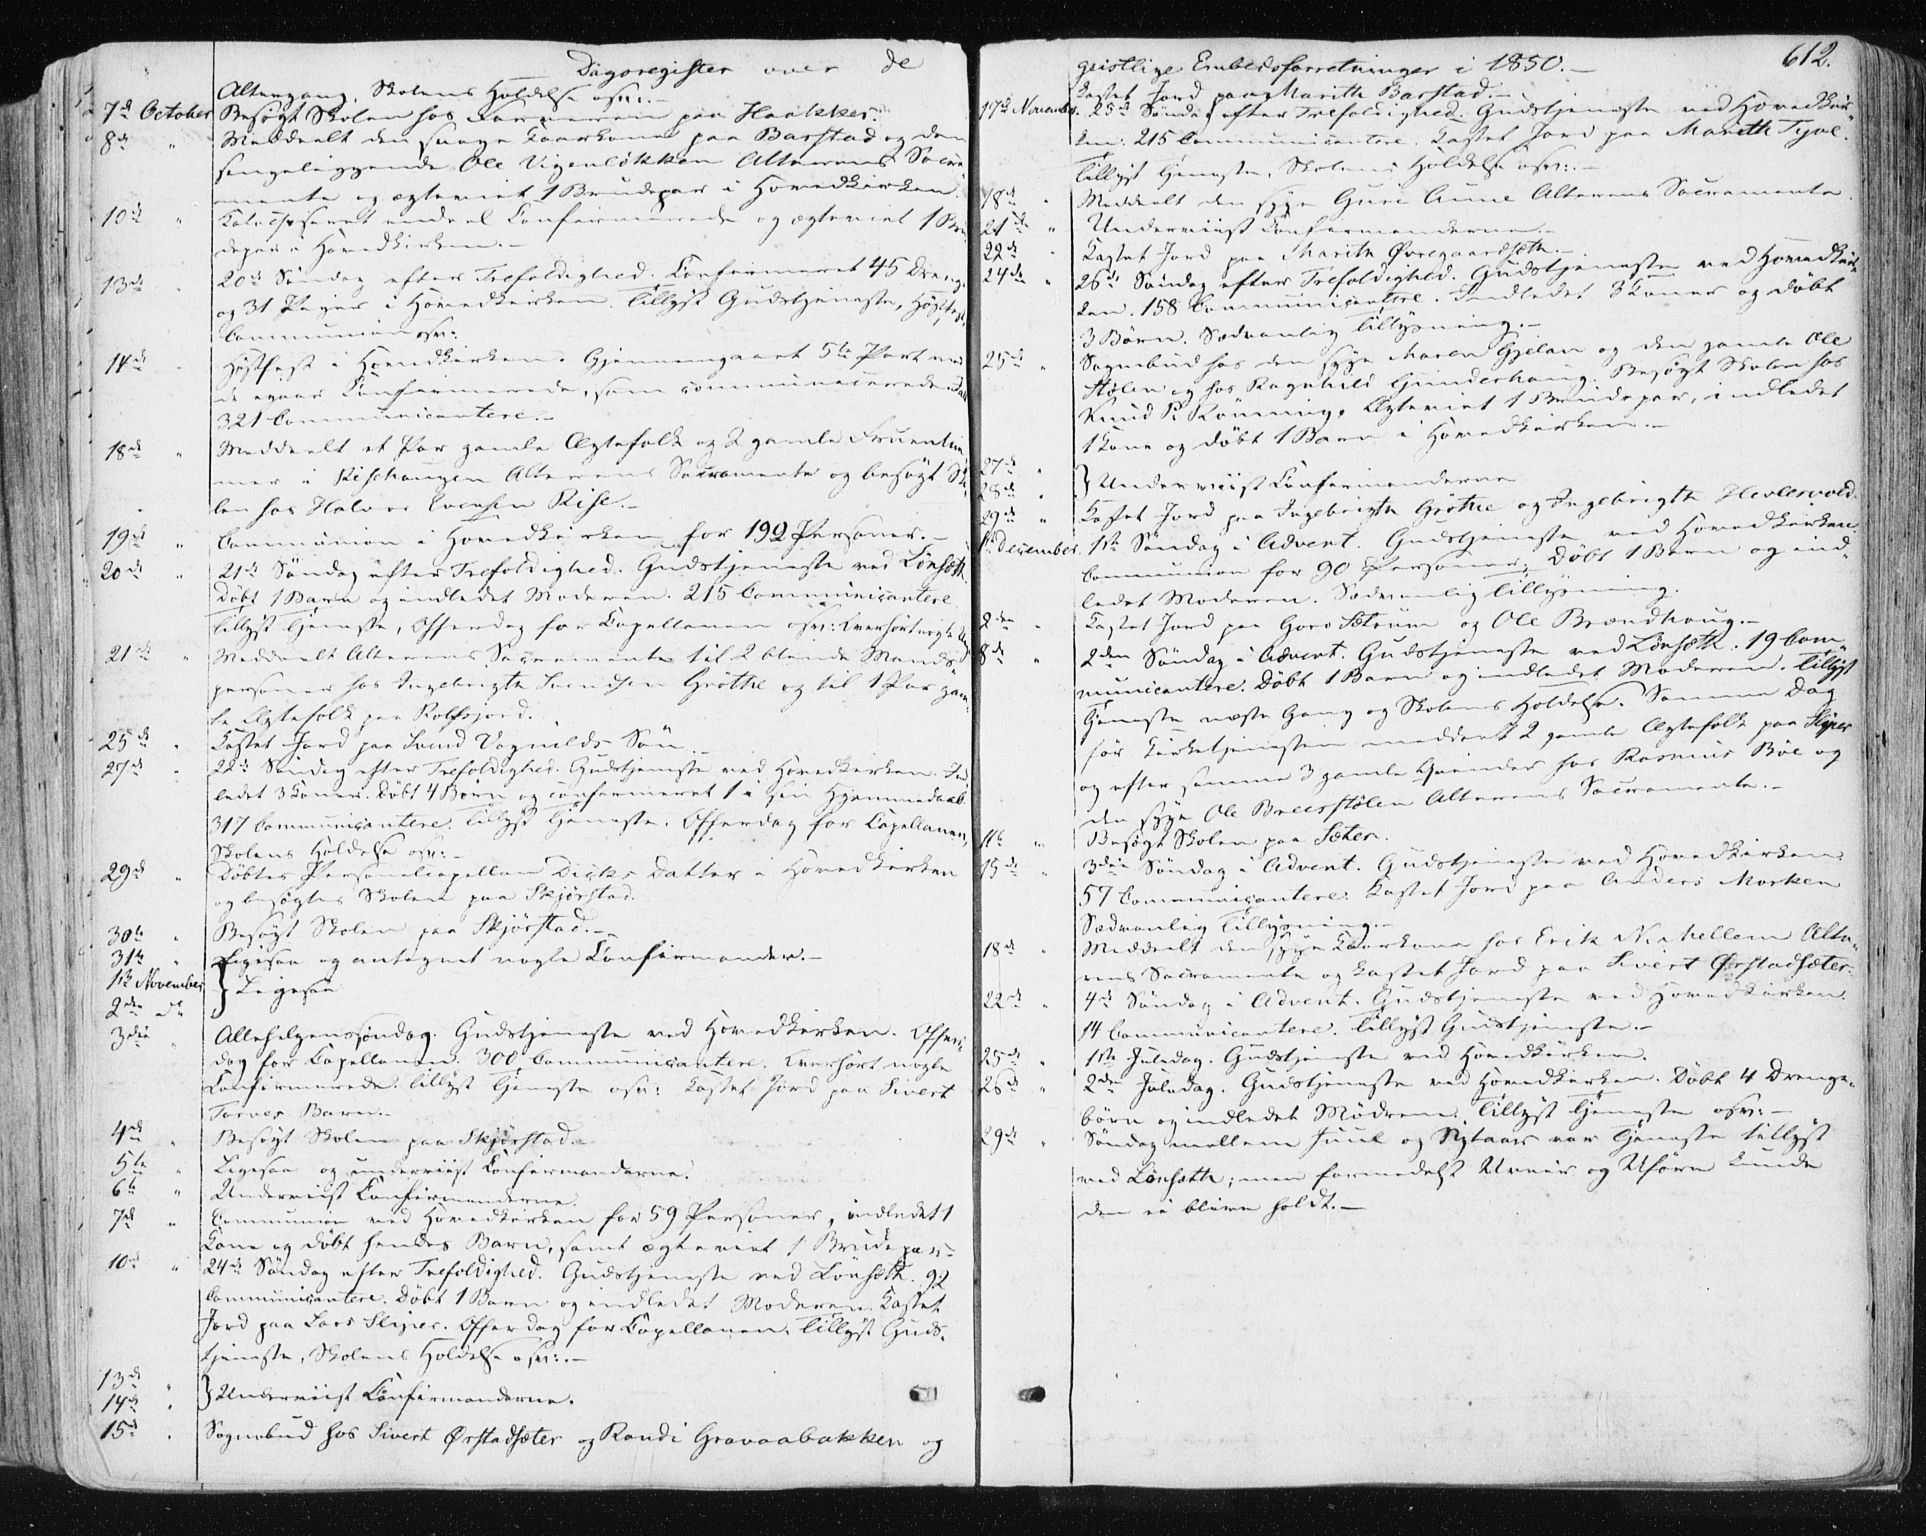 Dagsregister over de
Altergang, Skolens Holdelse osv:.-
7de October Besøgt Skolen hos paa Haakker.
8de " Meddeelt den svage Kaarkone paa Barstad og den
sengeliggende Ole Vigenløkken Alterens Sacra-
mente og ægteviet 1 Brudepar i Hovedkirken.
10de " Catechiseret endeel Confirmerede og ægteviet 1 Bru-
depar i Hovedkirken.-
13de " 20de Søndag efter Trefoldighed. Confirmeret 45 Drenge
og 31 Piger i Hovedkirken. Tillyst Gudstjeneste, Høstfest,
Communion osv:
14de " Høstfest i Hovedkirken. Gjennemgaaet 5te Part med
de Confirmerede, som communicerede. I alt
321 Communicantere.-
18de " Meddeelt et Par gamle Ægtefolk og 2 gamle Fruentim-
mer i Risehaugen Alterens Sacramente og besøgt Sko-
len hos Halvor Evensen Rise.-
19de " Communion i Hovedkirken for 192 Personer.-
20de " 21de Søndag efter Trefoldighed. Gudstjeneste ved Lønseth.
Døbt 1 Barn og indledet Moderen. 215 Communicantere
Tillyst Tjeneste, Offerdag for Capellanen osv: Overhørt nogle
21de " Meddeelt Alterens Sacramente til 2 blinde Mands-
personer hos Ingebrigt Svendsen Grøthe og til 1 Par gam-
le Ægtefolk paa Rolfsjord.
25de " Kastet Jord paa Svend Vognilds Søn.-
27de " 22de Søndag efter Trefoldighed. Gudstjeneste ved Hovedkirken. Ind-
ledet 3 Koner. Døbt 4 Børn og confirmeret 1 i sin Hjemmedaab.
317 Communicantere. Tillyst Tjeneste. Offerdag for Capellanen,
Skolens Holdelse osv:-
29de " Døbtes Personelcapellan Dicks Datter i Hovedkirken
og besøgtes Skolen paa Skjørstad.
30te " Besøgt Skolen paa Skjørstad.-
31te " Ligesaa og antegnet nogle Confirmander.-
1ste November } Ligesaa
2den de
3die " Allehelgenssøndag. Gudstjeneste ved Hovedkirken. Offer-
dag for Capellanen. 300 Communicantere. Overhørt nogle
Confirmerede. Tillyst Tjeneste osv: Kastet Jord paa Sivert
Torves Barn.-
4de " Besøgt Skolen paa Skjørstad.
5te " Ligesaa og underviist Confirmanderne.
6te " Underviist Confirmanderne.
7de " Communion ved Hovedkirken for 59 Personer, indledet 1
Kone og døbt hendes Barn, samt ægteviet 1 Brudepar.
10de " 24de Søndag efter Trefoldighed. Gudstjeneste ved Lønseth. 92
Communicantere. Døbt 1 Barn og indledet Moderen. Kastet
Jord paa Lars Stiper. Offerdag for Capellanen. Tillyst Guds-
tjeneste, Skolens Holdelse osv:.-
13de "
14de " } Underviist Confirmanderne.
15de " Sognebud hos Sivert Ørstadsæter og Randi Gravaabakken og
geistlige Embedsforretninger i 1850.- 612.
Kastet Jord paa Marith Barstad.-
17de November. 25de Søndag efter Trefoldighed. Gudstjeneste ved Hovedkir-
ken. 215 Communicantere. Kastet Jord paa Marith Tyve.
Tillyst Tjeneste, Skolens Holdelse osv:.-
18de " Meddeelt den syge Guri Aune Alterens Sacramente.
21de " Underviist Confirmanderne.-
22de " Kastet Jord paa Marith Øvregaardseth.-
24de " 26de Søndag efter Trefoldighed. Gudstjeneste ved Hovedkir-
ken. 158 Communicantere. Indledet 3 Koner og døbt
3 Børn. Sædvanlig Tillysning.-
25de " Sognebud hos den syge Maren Gjelan og den gamle Ole
Stølen og hos Ragnhild Gunderhaug. Besøgt Skolen hos
Knud P. Rønning. Ægteviet 1 Brudepar, indledet
1 Kone og døbt 1 Barn i Hovedkirken.-
27de "
28de " } Underviist Confirmanderne
29de " Kastet Jord paa Ingebrigt Grøthe og Ingebrigth Hevlesvold.
1ste December. 1ste Søndag i Advent. Gudstjeneste ved Hovedkirken
Communion for 90 Personer. Døbt 1 Barn og ind-
ledet Moderen. Sædvanlig Tillysning.
2den " Kastet Jord paa Goro Sætrum og Ole Brændhaug.-
8de " 2den Søndag i Advent. Gudstjeneste ved Lønseth. 19 Com-
municantere. Døbt 1 Barn og indledet Moderen. Tillyst
Tjeneste næste Gang og Skolens Holdelse. Samme Dag
før Kirketjenesten meddeelt 2 gamle Ægtefolk paa Stiper
og efter samme 3 gamle Qvinder hos Rasmus Böe og
den syge Ole Breesstølen Alterens Sacramente.-
11te " Besøgt Skolen paa Sæter.
15de " 3die Søndag i Advent. Gudstjeneste ved Hovedkirken.
57 Communicantere. Kastet Jord paa Anders Morken
Sædvanlig Tillysning.-
18de " Meddeelt den syge Kaarkone hos Erik Mjehellem Alte-
rens Sacramente og kastet Jord paa Sivert Ørstadsæter.
22de " 4de Søndag i Advent. Gudstjeneste ved Hovedkirken.
14 Communicantere. Tillyst Gudstjeneste.-
25de " 1ste Juledag. Gudstjeneste ved Hovedkirken.
26de " 2den Juledag. Gudstjeneste ved Hovedkirken. Døbt 4 Drenge-
børn og indledet Mødrene. Tillyst Tjeneste osv:-
29de " Søndag mellem Juul og Nytaar var Tjeneste tillyst
ved Lønseth; men formedelst Uveir og Uføre kunde
den ei blive holdt.-